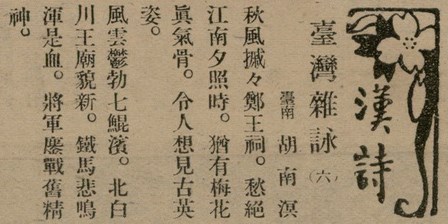 漢詩
臺灣雜詠（六）
臺南 胡南溟
秋風摵々鄭王祠。愁絕
江南夕照時。猶有梅花
眞氣骨。令人想見古英
姿。
風雲鬱勃七鯤濱。北白
川王廟貌新。鐵馬悲鳴
渾是血。將軍鏖戰舊精
神。